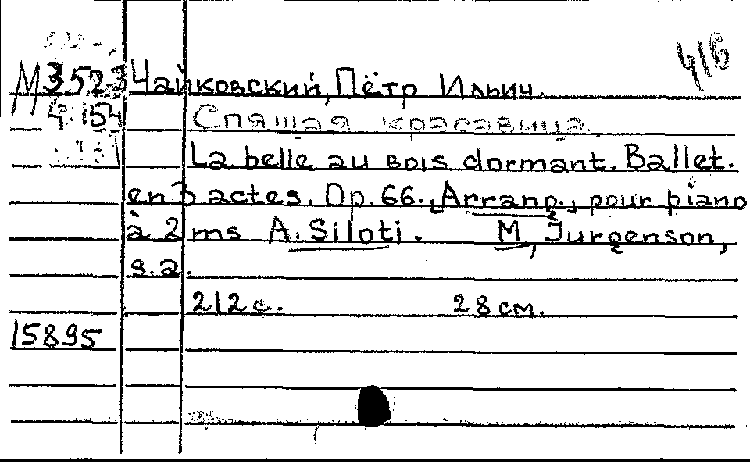 416
М 3523 Чайковский, Пётр Ильич.
4154 Спящая красавица.
La belle au bois dormant. Ballet.
en 3 actes. Op. 66. Arrang. pour piano
à 2 ms A. Siloti. M, Jurgenson,
s.a.
212 с. 28 см.
15895